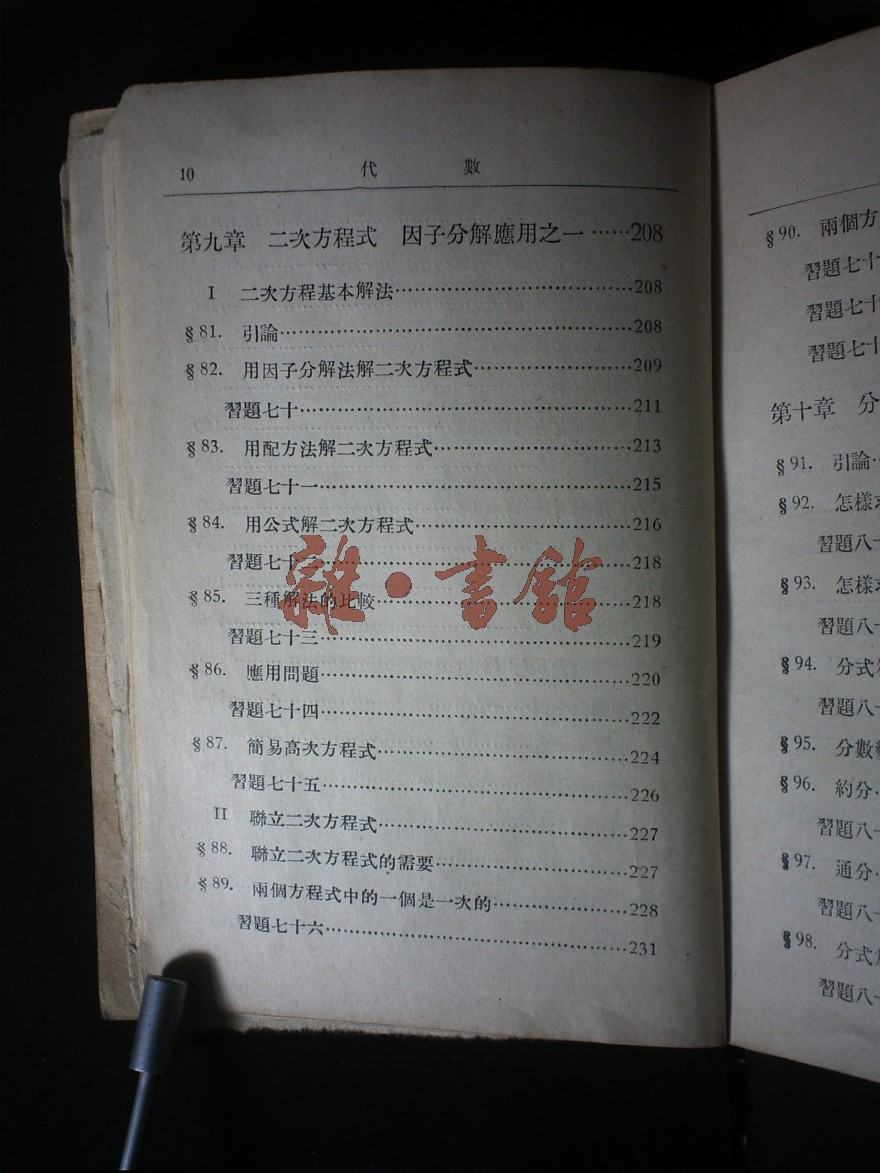 10 代 數
第九章 二次方程式 因子分解應用之一……208
I 二次方程基本解法……208
§81. 引論……208
§82. 用因子分解法解二次方程式……209
習題七十……211
§83. 用配方法解二次方程式……213
習題七十一……215
§84. 用公式解二次方程式……216
習題七十二……218
§85. 三種解法的比較……218
習題七十三……219
§86. 應用問題……220
習題七十四……222
§87. 簡易高次方程式……224
習題七十五……226
II 聯立二次方程式……227
§88. 聯立二次方程式的需要……227
§89. 兩個方程式中的一個是一次的……228
習題七十六……231
雜·書館
§90. 兩個方
習題七十
習題七十
習題七十
第十章 分
§91. 引論
§92. 怎樣
習題八
§93. 怎樣
習題八
§94. 分式
習題八
§95. 分數
§96. 約分
習題八
§97. 通分
習題八
§98. 分式
習題八